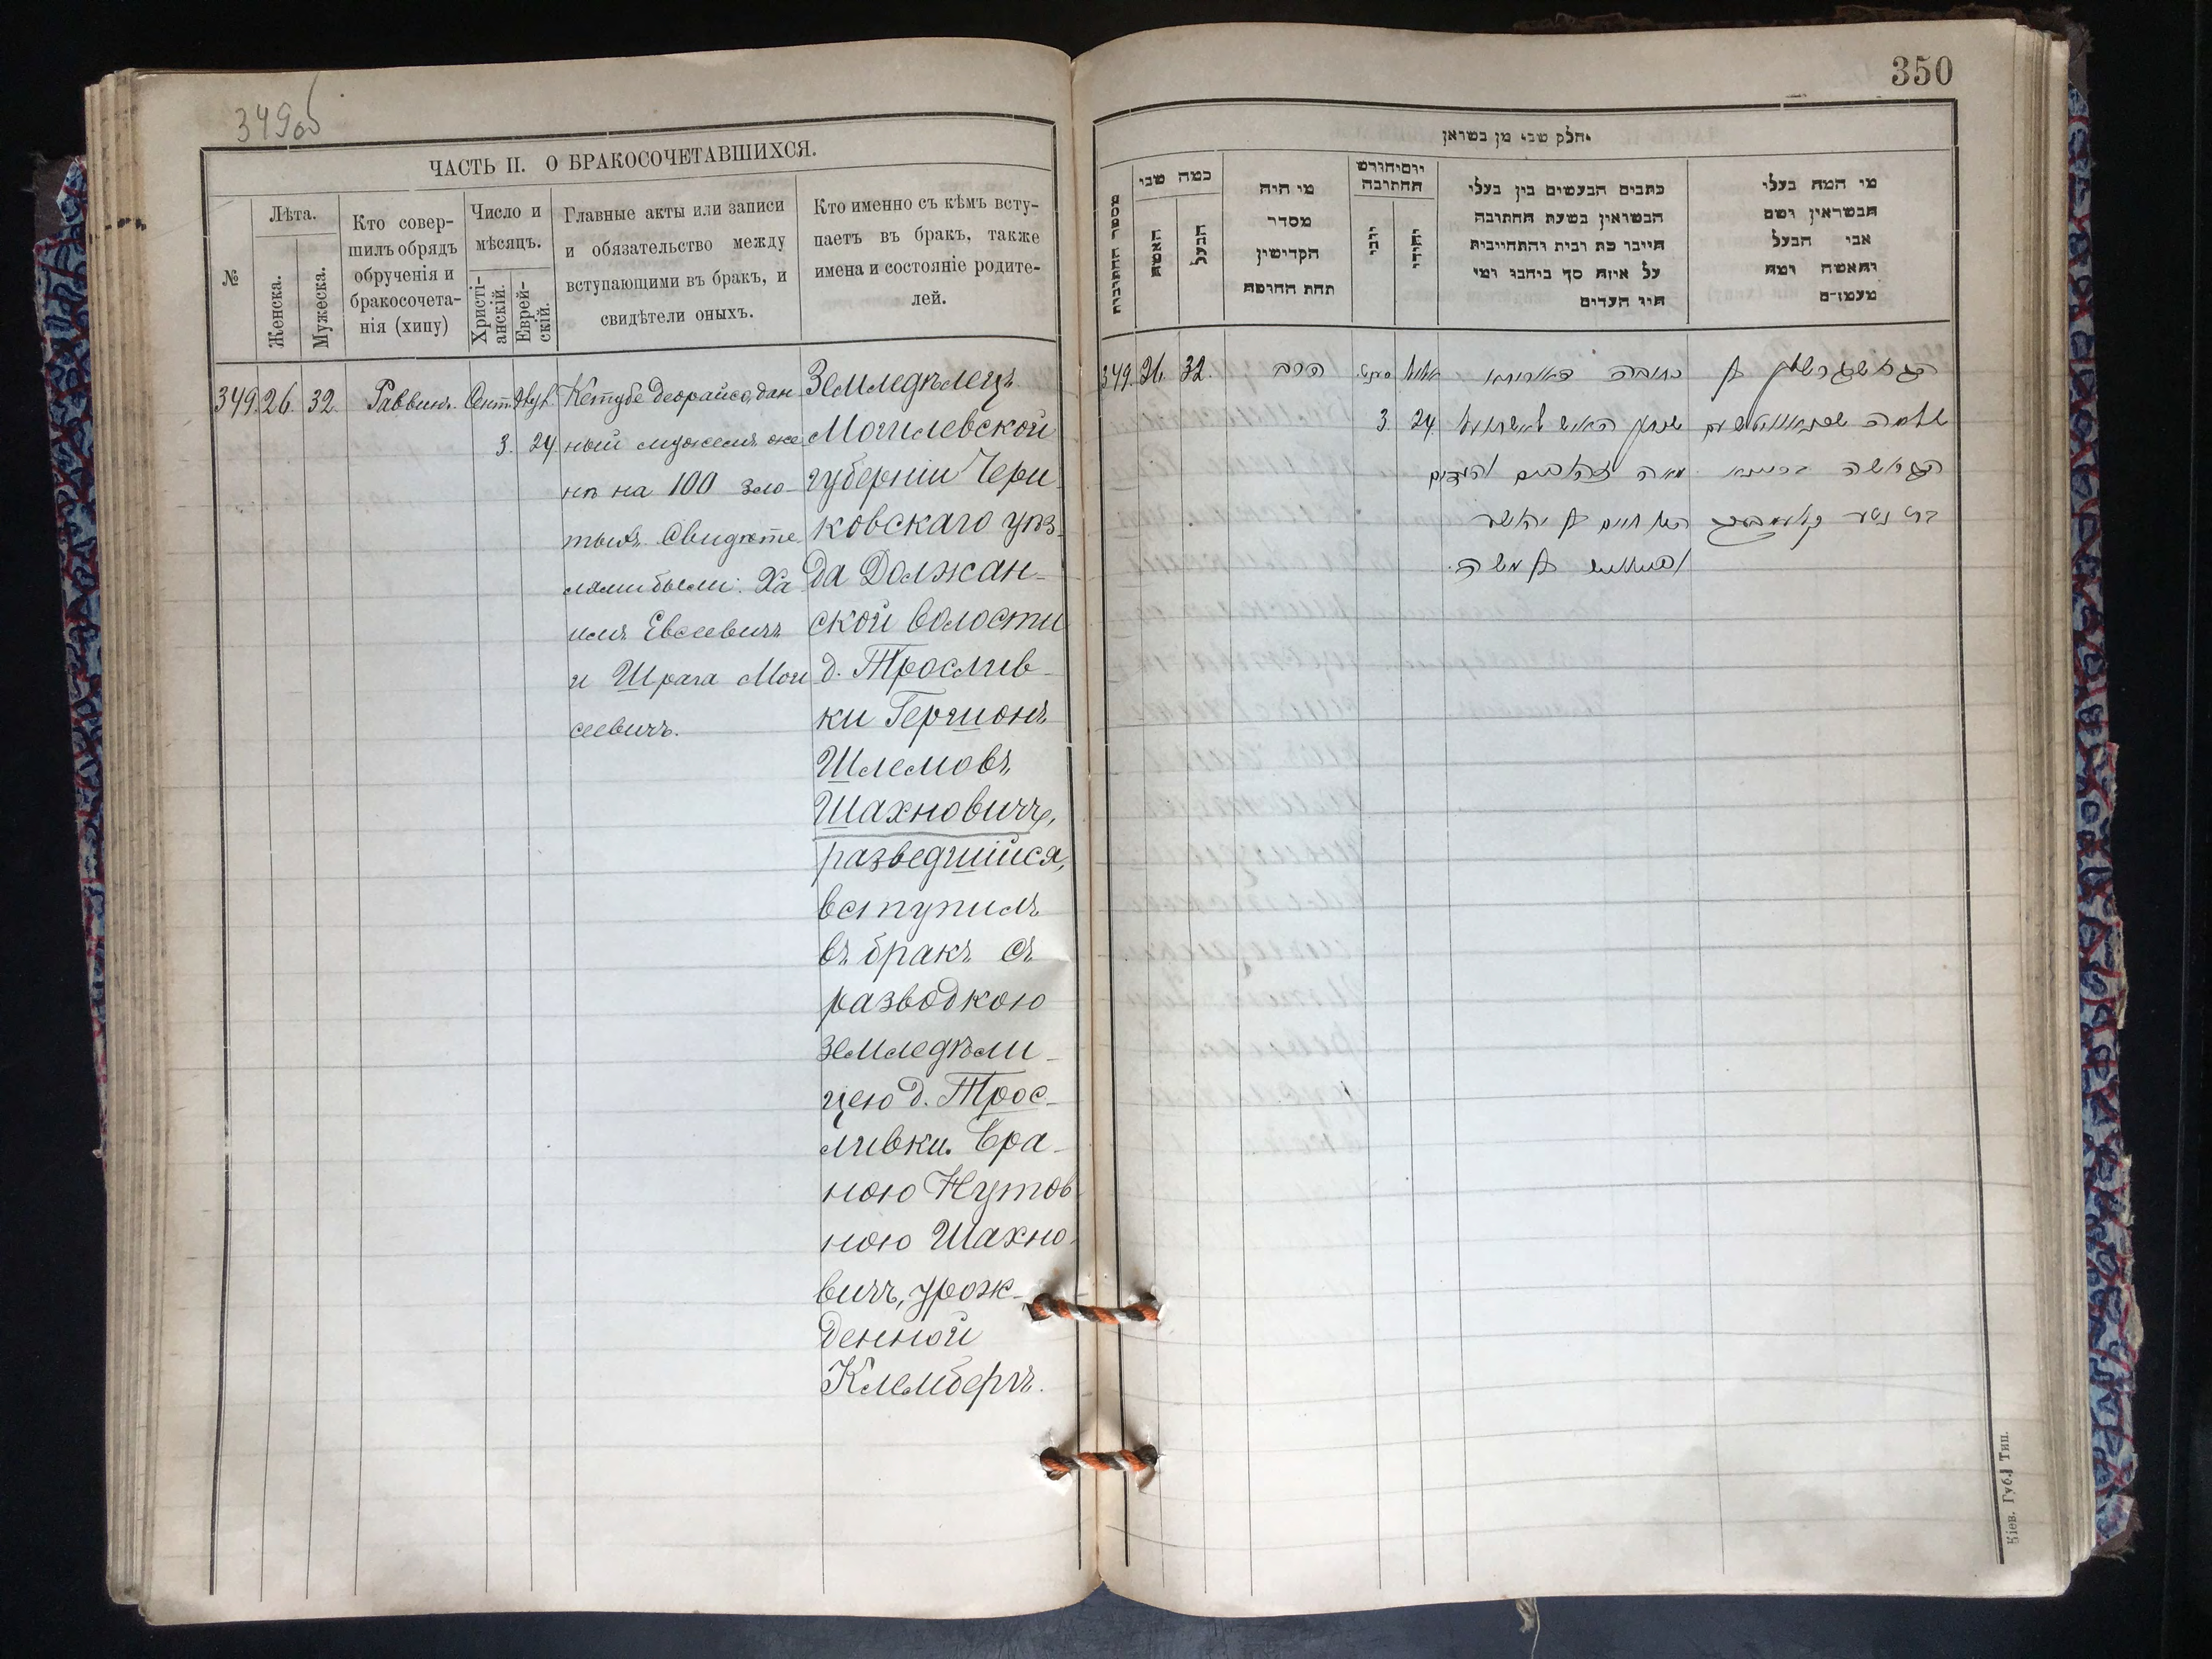 349об
ЧАСТЬ II. О БРАКОСОЧЕТАВШИХСЯ.
№
Лѣта.
Женска.
Мужеска.
Кто совер-
шилъ обрядъ
обрученія и
бракосочета-
нія (хипу)
Число и
мѣсяцъ.
Христі-
анскій.
Еврей-
скій.
Главные акты или записи
и обязательство между
вступающими въ бракъ, и
свидѣтели оныхъ.
Кто именно съ кѣмъ всту-
паетъ въ бракъ, также
имена и состояніе родите-
лей.
349. 26. 32. Раввинъ. Сент. Элул.
3. 24
Кетубе деорайсо, дан
ный мужемъ же
нѣ на 100 зло-
тыхъ. Свидѣте
лями были: Ха
имъ Евсеевичъ
и Шрага Мои
сеевичъ.
Земледѣлецъ
Могилевской
губерніи Чери
ковскаго уѣз-
да Должан-
ской волости
д. Трослив-
ки Гершонъ
Шлемовъ
Шахновичъ,
разведшійся,
вступилъ
въ бракъ съ
разводкою
земледѣли-
цею д. Трос-
ливки. Бра-
ною Нутов
ною Шахно-
вичъ, урож-
денной
Клемберъ.
350
חלק שני מן נשואין
מספר החתונות
כמה שני
האשה
הבעל
מי היה
מסדר
הקדישין
תחת החופה
יום וחודש
החתונה
יוני
יהודי
כתבים הנעשים בין בעלי
הנשואין בשעת החתונה
היינו כתובות והתחייבות
על איזה סך ביניהם ומי
היו העדים
מי המה בעלי
הנשואין ושם
אבי הבעל
והאשה ומה
מעמדם
349. 26. 32. הרב
3. 24. אלול
כתובה דאורייתא
שנתן האיש לאשתו על
מאה זהובים והעדים
חיים
משה.
הגרוש גרשון
שלמה
הגרושה בריינא
בת נטע
Кіев. Губ. Тип.